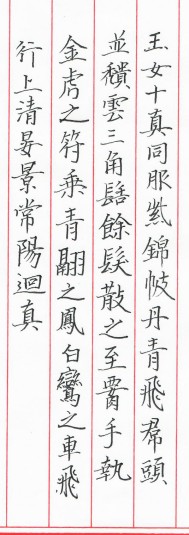 玉女十真同服紫錦帔丹青飛帬頭
並穨雲三角髻餘髮散之至手執
金虎之符乘青翮之鳳白鸞之車飛
行上清晏景常陽迴真